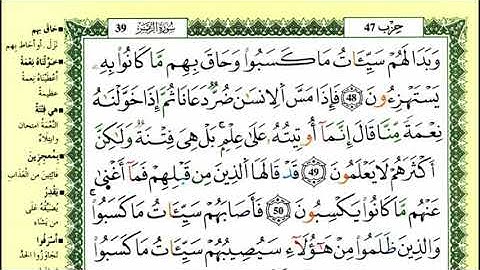 حزب 47
سورة الزمر
39
وَبَدَا لَهُمْ سَيِّـَٔاتُ مَا كَسَبُوا۟ وَحَاقَ بِهِم مَّا كَانُوا۟ بِهِۦ
يَسْتَهْزِءُونَ (48) فَإِذَا مَسَّ ٱلْإِنسَٰنَ ضُرٌّ دَعَانَا ثُمَّ إِذَا خَوَّلْنَٰهُ
نِعْمَةً مِّنَّا قَالَ إِنَّمَآ أُوتِيتُهُۥ عَلَىٰ عِلْمٍۭ بَلْ هِىَ فِتْنَةٌ وَلَٰكِنَّ
أَكْثَرَهُمْ لَا يَعْلَمُونَ (49) قَدْ قَالَهَا ٱلَّذِينَ مِن قَبْلِهِمْ فَمَآ أَغْنَىٰ
عَنْهُم مَّا كَانُوا۟ يَكْسِبُونَ (50) فَأَصَابَهُمْ سَيِّـَٔاتُ مَا كَسَبُوا۟
وَٱلَّذِينَ ظَلَمُوا۟ مِنْ هَٰٓؤُلَآءِ سَيُصِيبُهُمْ سَيِّـَٔاتُ مَا كَسَبُوا۟
حَاقَ بِهِم
نزل، أو أحاط بهم
خَوَّلْنَاهُ نِعْمَةً
أعطيناه نعمة
عظيمة
هِيَ فِتْنَةٌ
النعمة امتحان
وابتلاء
بِمُعْجِزِينَ
فائتين من العذاب
يَقْدِرُ
يضيّقه على
من يشاء
أَسْرَفُوا
تجاوزوا الحد